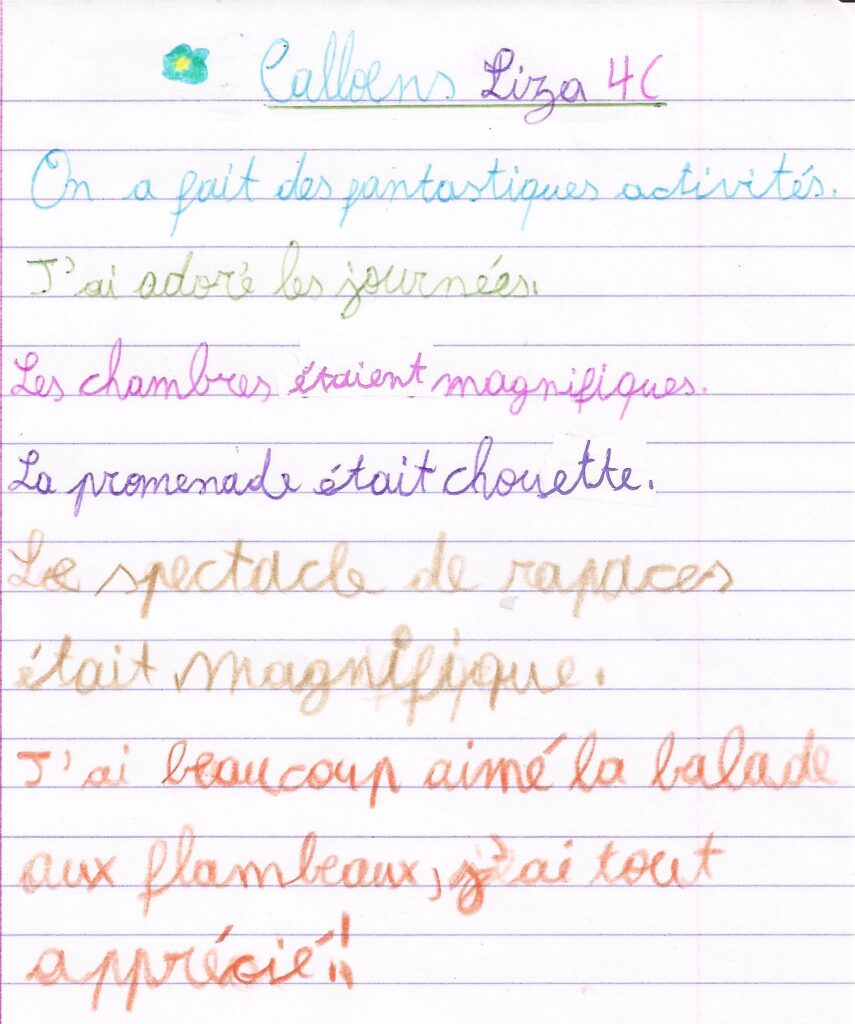 Calloens Liza 4C
On a fait des fantastiques activités.
J'ai adoré les journées.
Les chambres étaient magnifiques.
La promenade était chouette.
Le spectacle de rapaces
était magnifique.
J'ai beaucoup aimé la balade
aux flambeaux, j'ai tout
apprécié!!